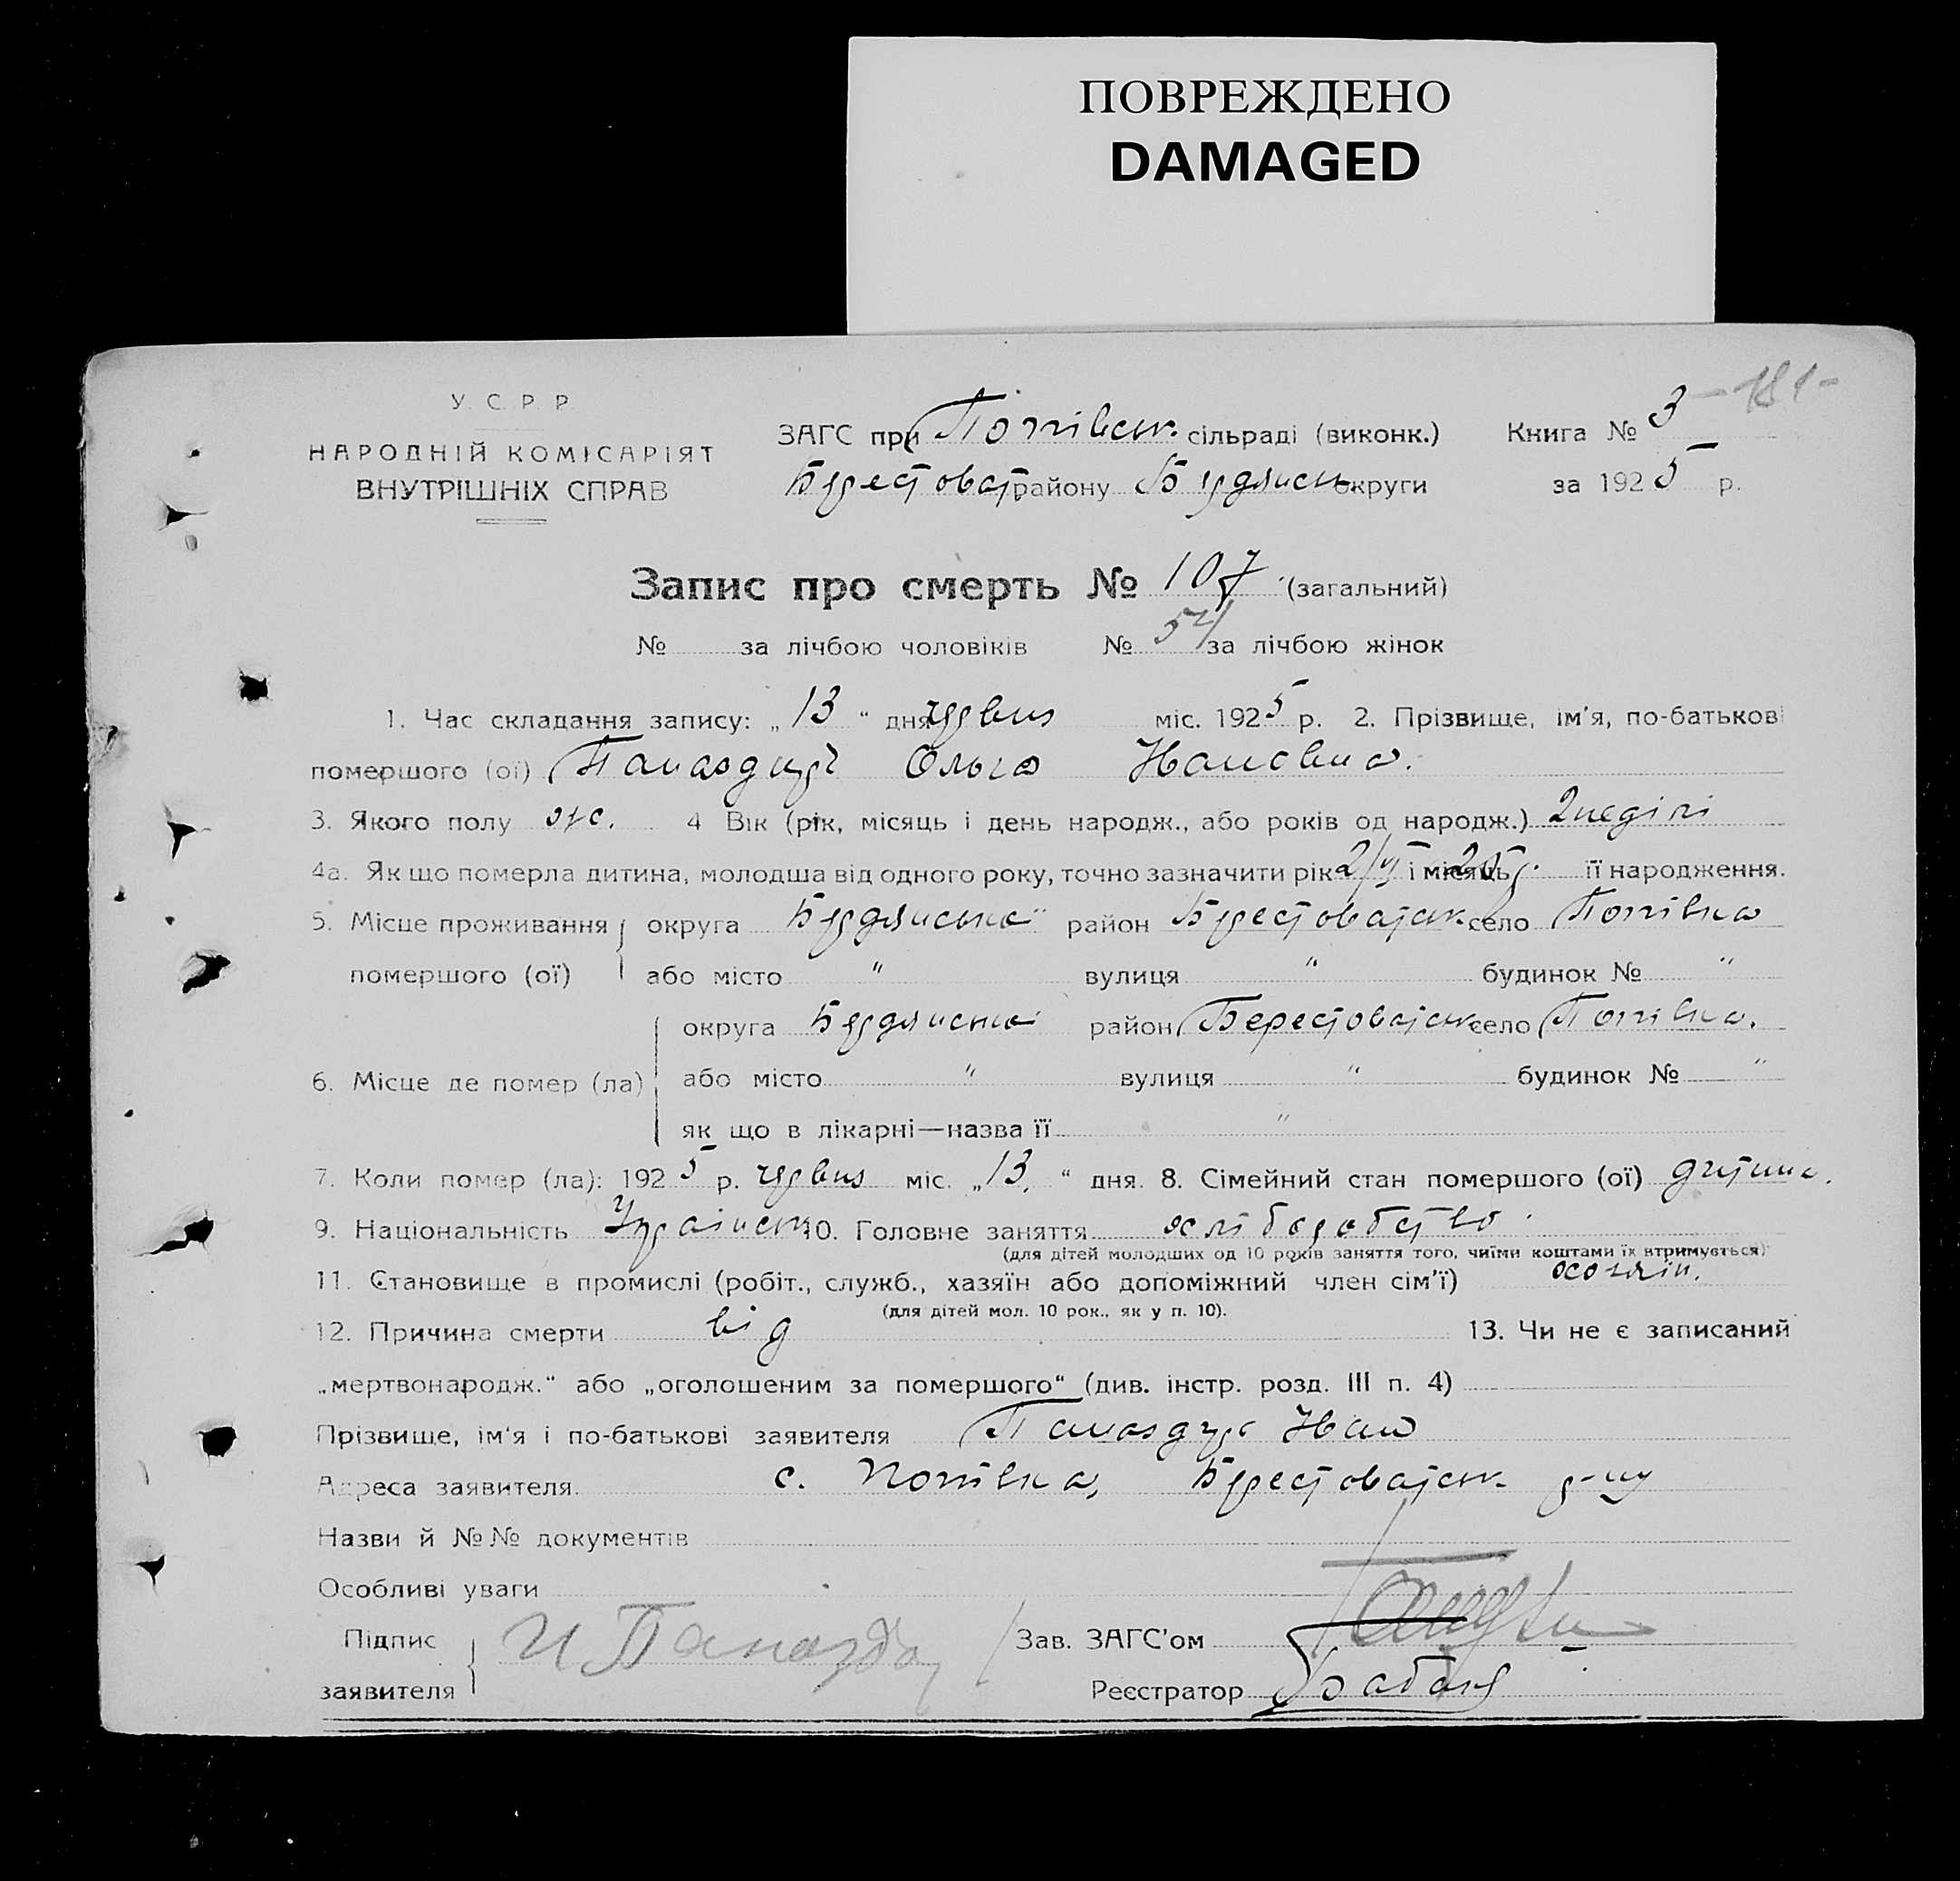 ПОВРЕЖДЕНО
DAMAGED
У. С. Р. Р.
НАРОДНІЙ КОМІСАРІЯТ
ВНУТРІШНІХ СПРАВ
ЗАГС при Попівськ. сільраді (виконк.) Книга № 3 -181-
Берестоват. району Бердянськ округи за 1925 р.
Запис про смерть № 107 (загальний)
№ за лічбою чоловіків № 54 за лічбою жінок
1. Час складання запису: „13“ дня червня міс. 1925 р. 2. Прізвище, ім'я, по-батькові
помершого (ої) Ольга Ивановна.
3. Якого полу ж. 4 Вік (рік, місяць і день народж., або років од народж.) 2 неділі
4а. Як що померла дитина, молодша від одного року, точно зазначити рік 2/VI і місяць 25 р. її народження.
5. Місце проживання округа Бердянська район Берестоватськ. село Попівка
помершого (ої) або місто " вулиця " будинок № "
округа Бердянська район Берестоватськ село Попівка.
6. Місце де помер (ла) або місто " вулиця " будинок № "
як що в лікарні—назва її "
7. Коли помер (ла): 1925 р. червня міс. „13.“ дня. 8. Сімейний стан помершого (ої) дитина.
9. Національність Українськ 10. Головне заняття хліборобство.
(для дітей молодших од 10 років заняття того, чиїми коштами їх втримується)
11. Становище в промислі (робіт., служб., хазяїн або допоміжний член сім'ї) хозяїн.
(для дітей мол. 10 рок., як у п. 10).
12. Причина смерти від 13. Чи не є записаний
„мертвонародж.“ або „оголошеним за помершого“ (див. інстр. розд. III п. 4)
Прізвище, ім'я і по-батькові заявителя Иван
Адреса заявителя. с. Попівка, Берестоватськ. р-ну
Назви й №№ документів
Особливі уваги
Підпис
заявителя
Зав. ЗАГС'ом
Реєстратор